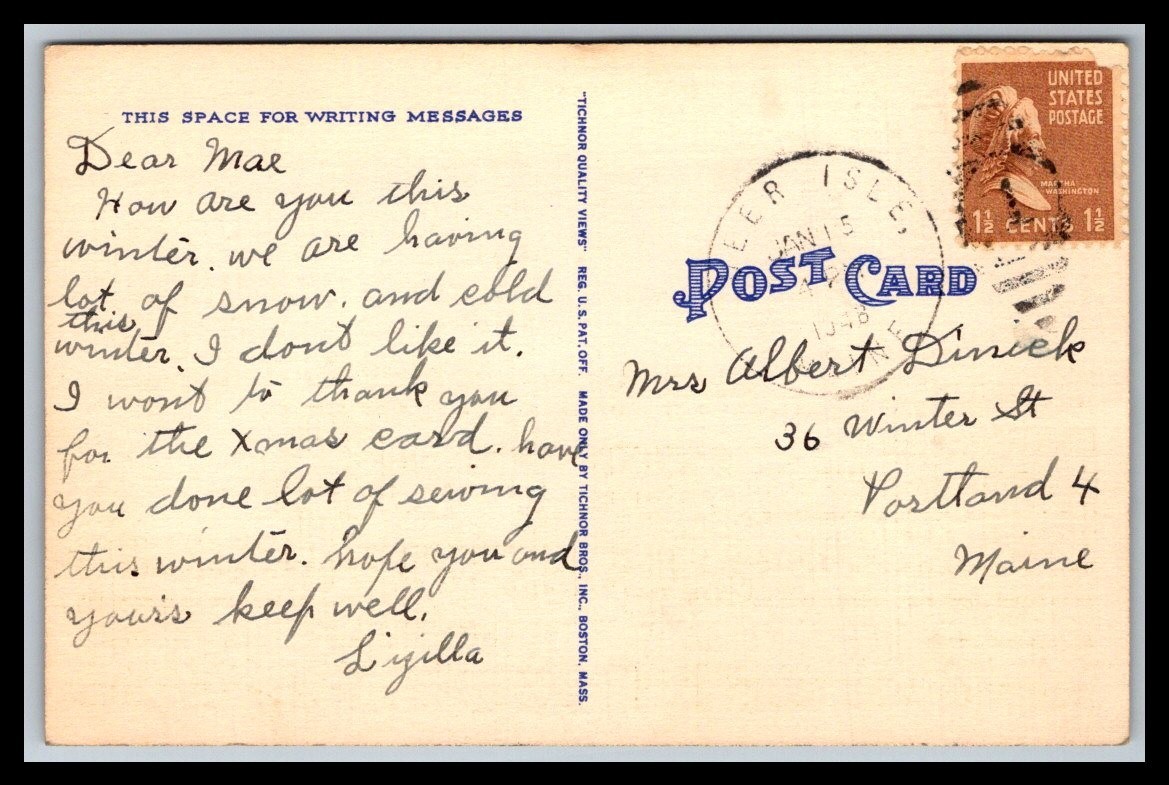 THIS SPACE FOR WRITING MESSAGES
Dear Mae
How are you this
winter. we are having
lot of snow. and cold
this
winter. I dont like it.
I wont to thank you
for the Xmas card. have
you done lot of sewing
this winter. hope you and
yours keep well.
"TICHNOR QUALITY VIEWS" REG. U. S. PAT. OFF. MADE ONLY BY TICHNOR BROS., INC., BOSTON, MASS.
EER ISLE,
JAN 15
1948
POST CARD
UNITED
STATES
POSTAGE
MARTHA
WASHINGTON
1½ CENTS 1½
Mrs Albert
36 Winter St
Portland 4
Maine